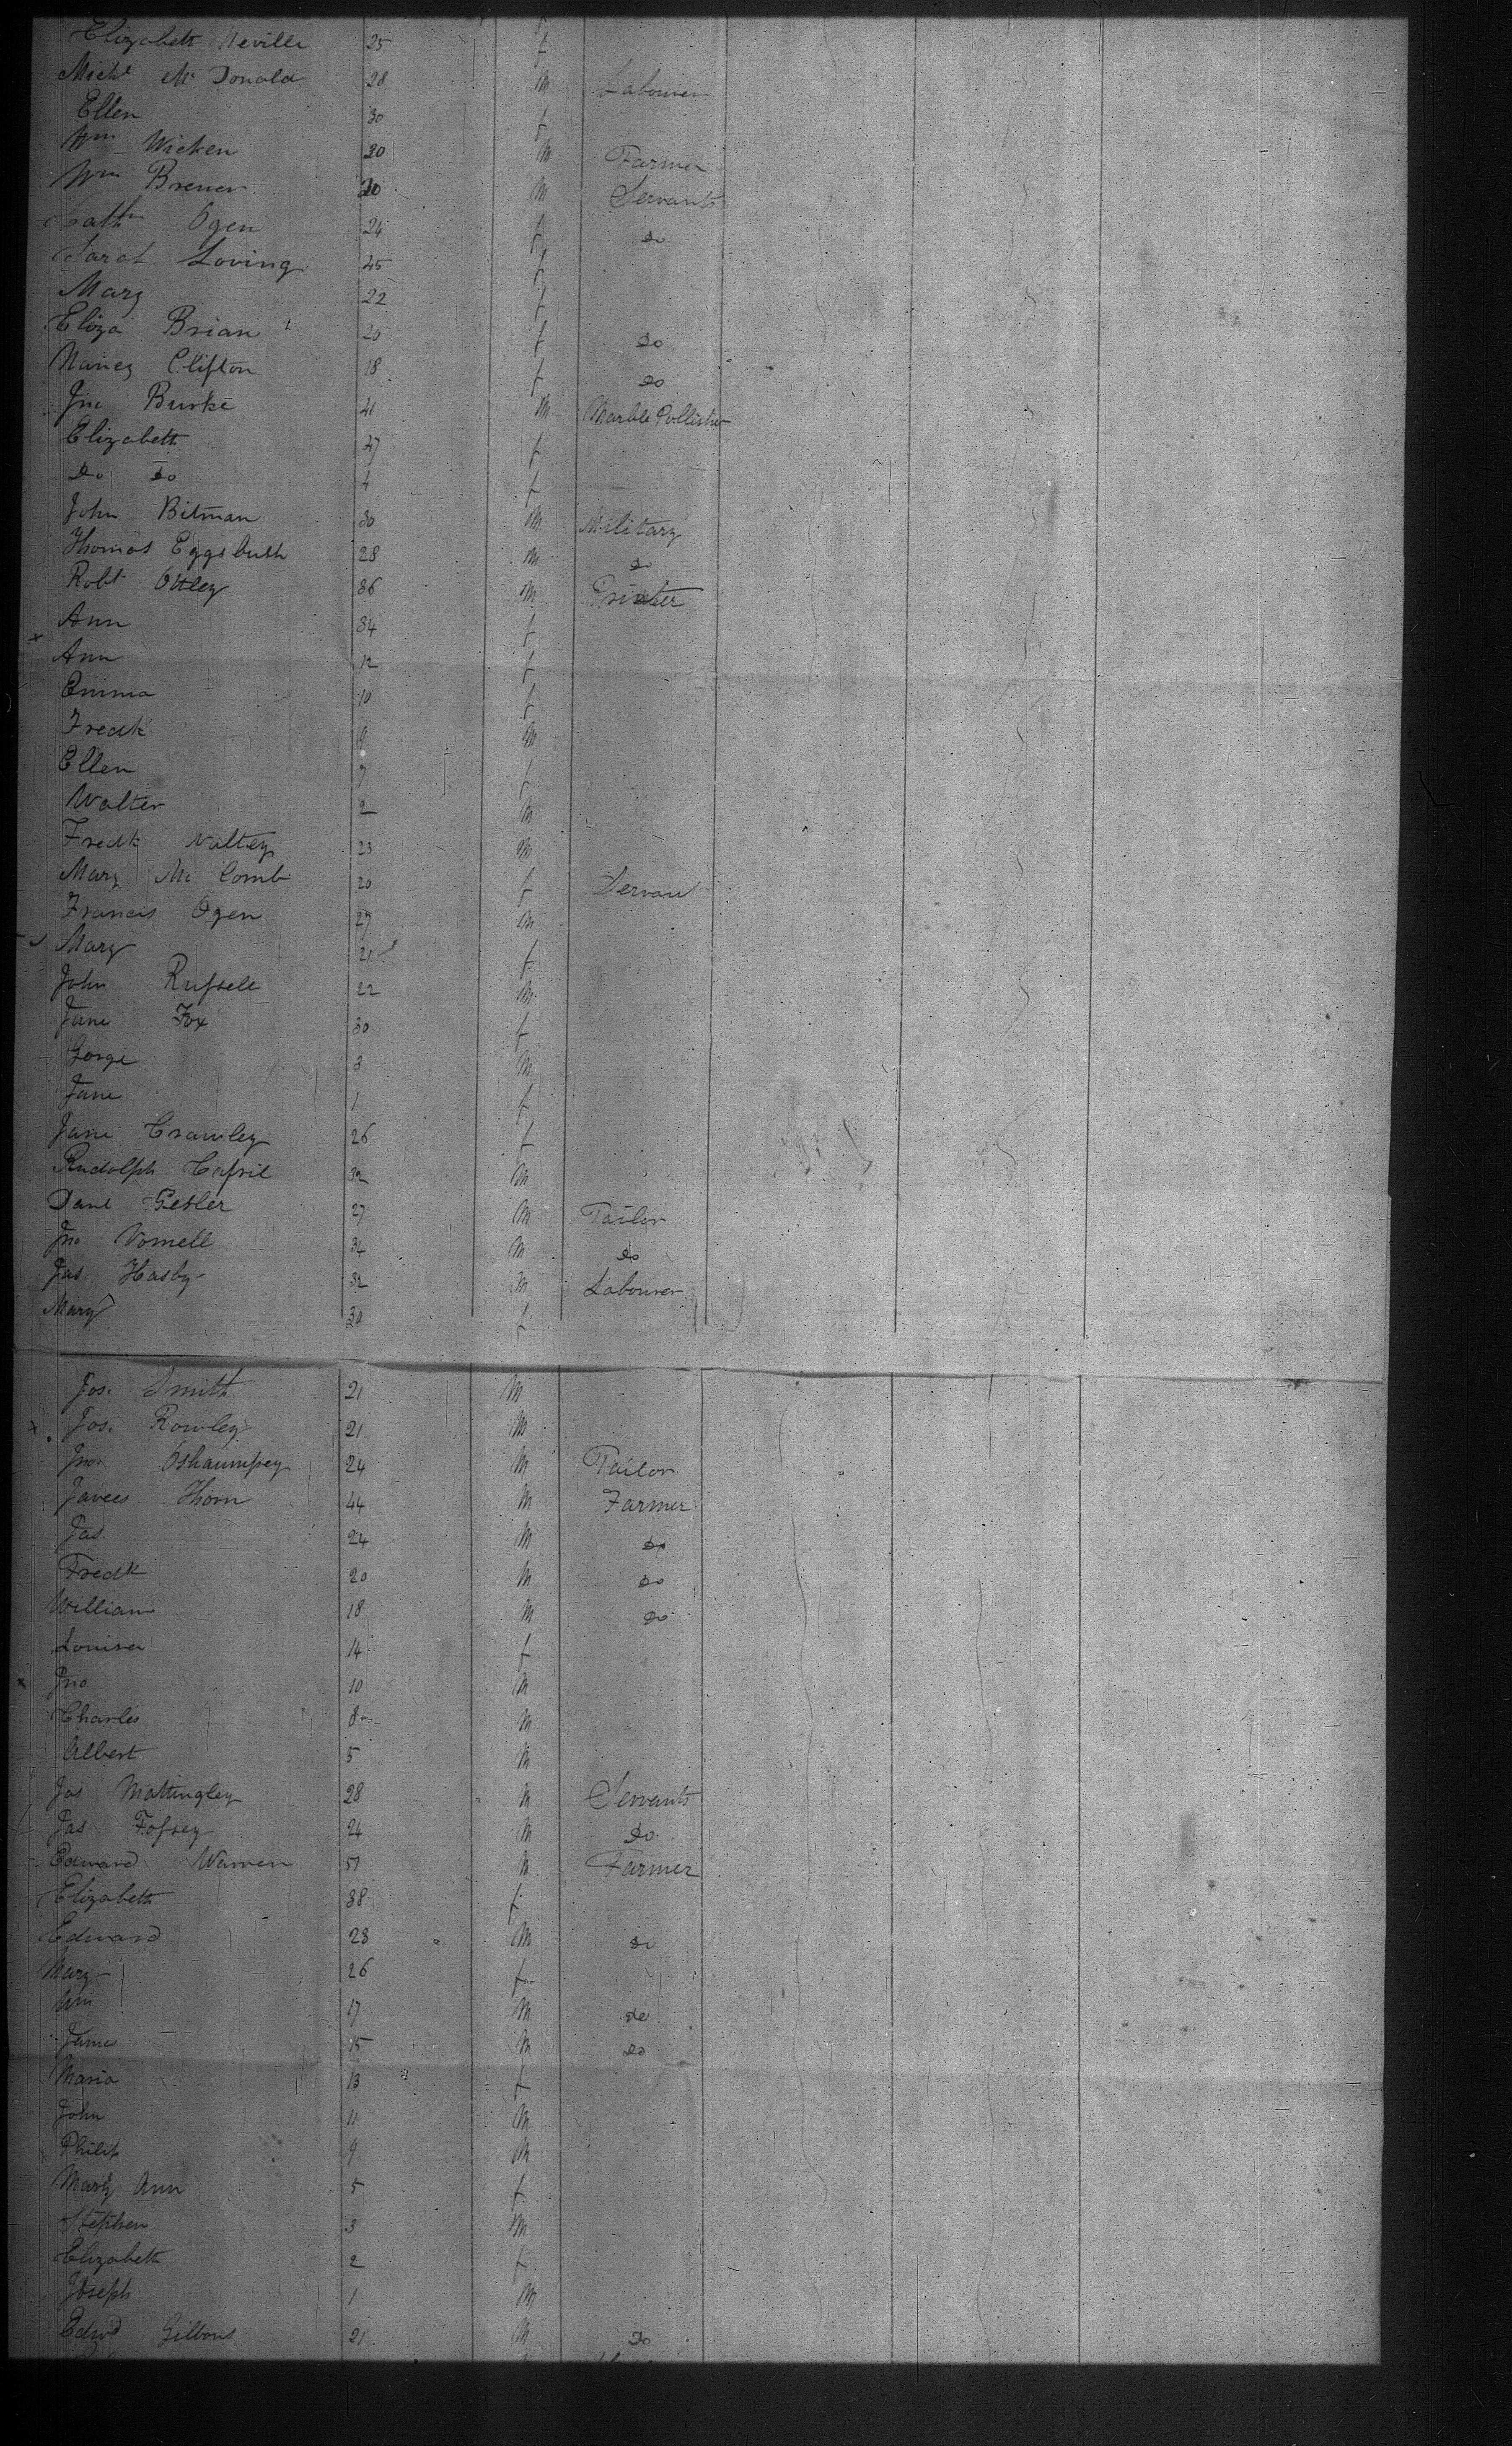 Elizabeth Neville 25 f
Michl McDonald 28 M Labourer
Ellen 30 f
Wm Wicken 20 M Farmer
Wm Brener 20 M Servants
Cathn Ogen 24 f do
Sarah Loving 45 f
Mary 22 f
Eliza Brian 20 f do
Nancy Clifton 18 f do
Jno Burke 41 M Marble Pollisher
Elizabeth 27 f
Do Do 4 f
John Bitman 30 M Military
Thomas Eggsbuth 28 M do
Robt Ottley 36 M Printer
Ann 34 f
Ann 12 f
Emma 10 f
Fredk 9 M
Ellen 7 f
Walter 2 M
Fredk Naltey 23 M
Mary McComb 20 f Servant
Francis Ogen 27 M
Mary 21 f
John Russell 22 M
Jane Fox 30 f
Gorge 3 M
Jane 1 f
Jane Crawley 26 f
Rudolph 32 M
Danl Gesler 27 M Tailor
Jno Vomell 34 M do
Jas Hasby 32 M Labourer
Mary 30 f
Jos. Smith 21 M
Jos. Rowley 21 M
Jno Oshaumpey 24 M Tailor
Thorn 44 M Farmer
Jas 24 M do
Fredk 20 M do
William 18 M do
Louisa 14 f
Jno 10 M
Charles 8 M
Albert 5 M
Jas Mattingley 28 M Servants
Jas Fossey 24 M Do
Edward Warren 51 M Farmer
Elizabeth 38 f
Edward 28 M do
Mary 26 f
Wm 17 M do
James 15 M do
Maria 13 f
John 11 M
Philip 9 M
Mary Ann 5 f
Stephen 3 M
Elizabeth 2 f
Joseph 1 M
Edwd Gibbons 21 M Do